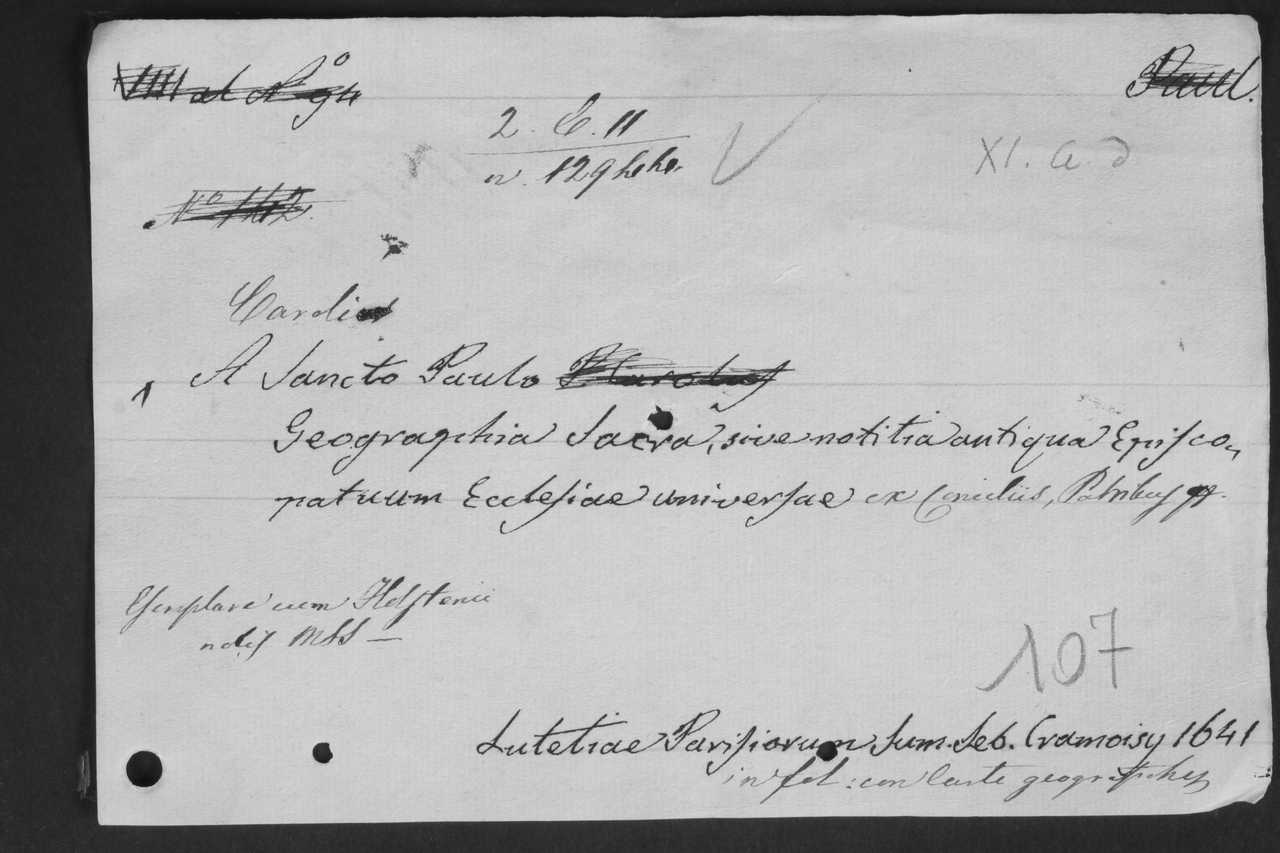 VIIII al N.º 94
Paul.
2. C. 11
n. 129 hh.
XI. a. d
Nº 142.
Caroli
A Sancto Paulo Carolus
Geographia Sacra, sive notitia antiqua Episco„
patuum Ecclesiae universae ex Conciliis, Patribus
Esemplare cum Holstenii
notis MSS —
107
Lutetiae Parisiorum Sum. Seb. Cramoisy 1641
in fol: con Carte geografiche